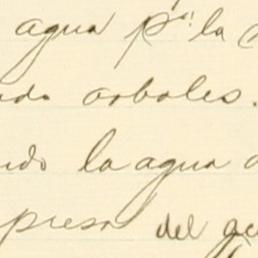 agua pª la
arboles.
ndo la agua
presa del